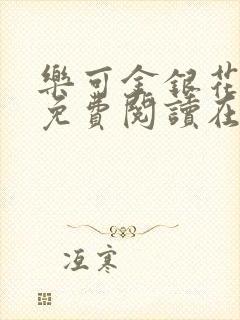 樂可金銀花
免費閱讀在
冱寒